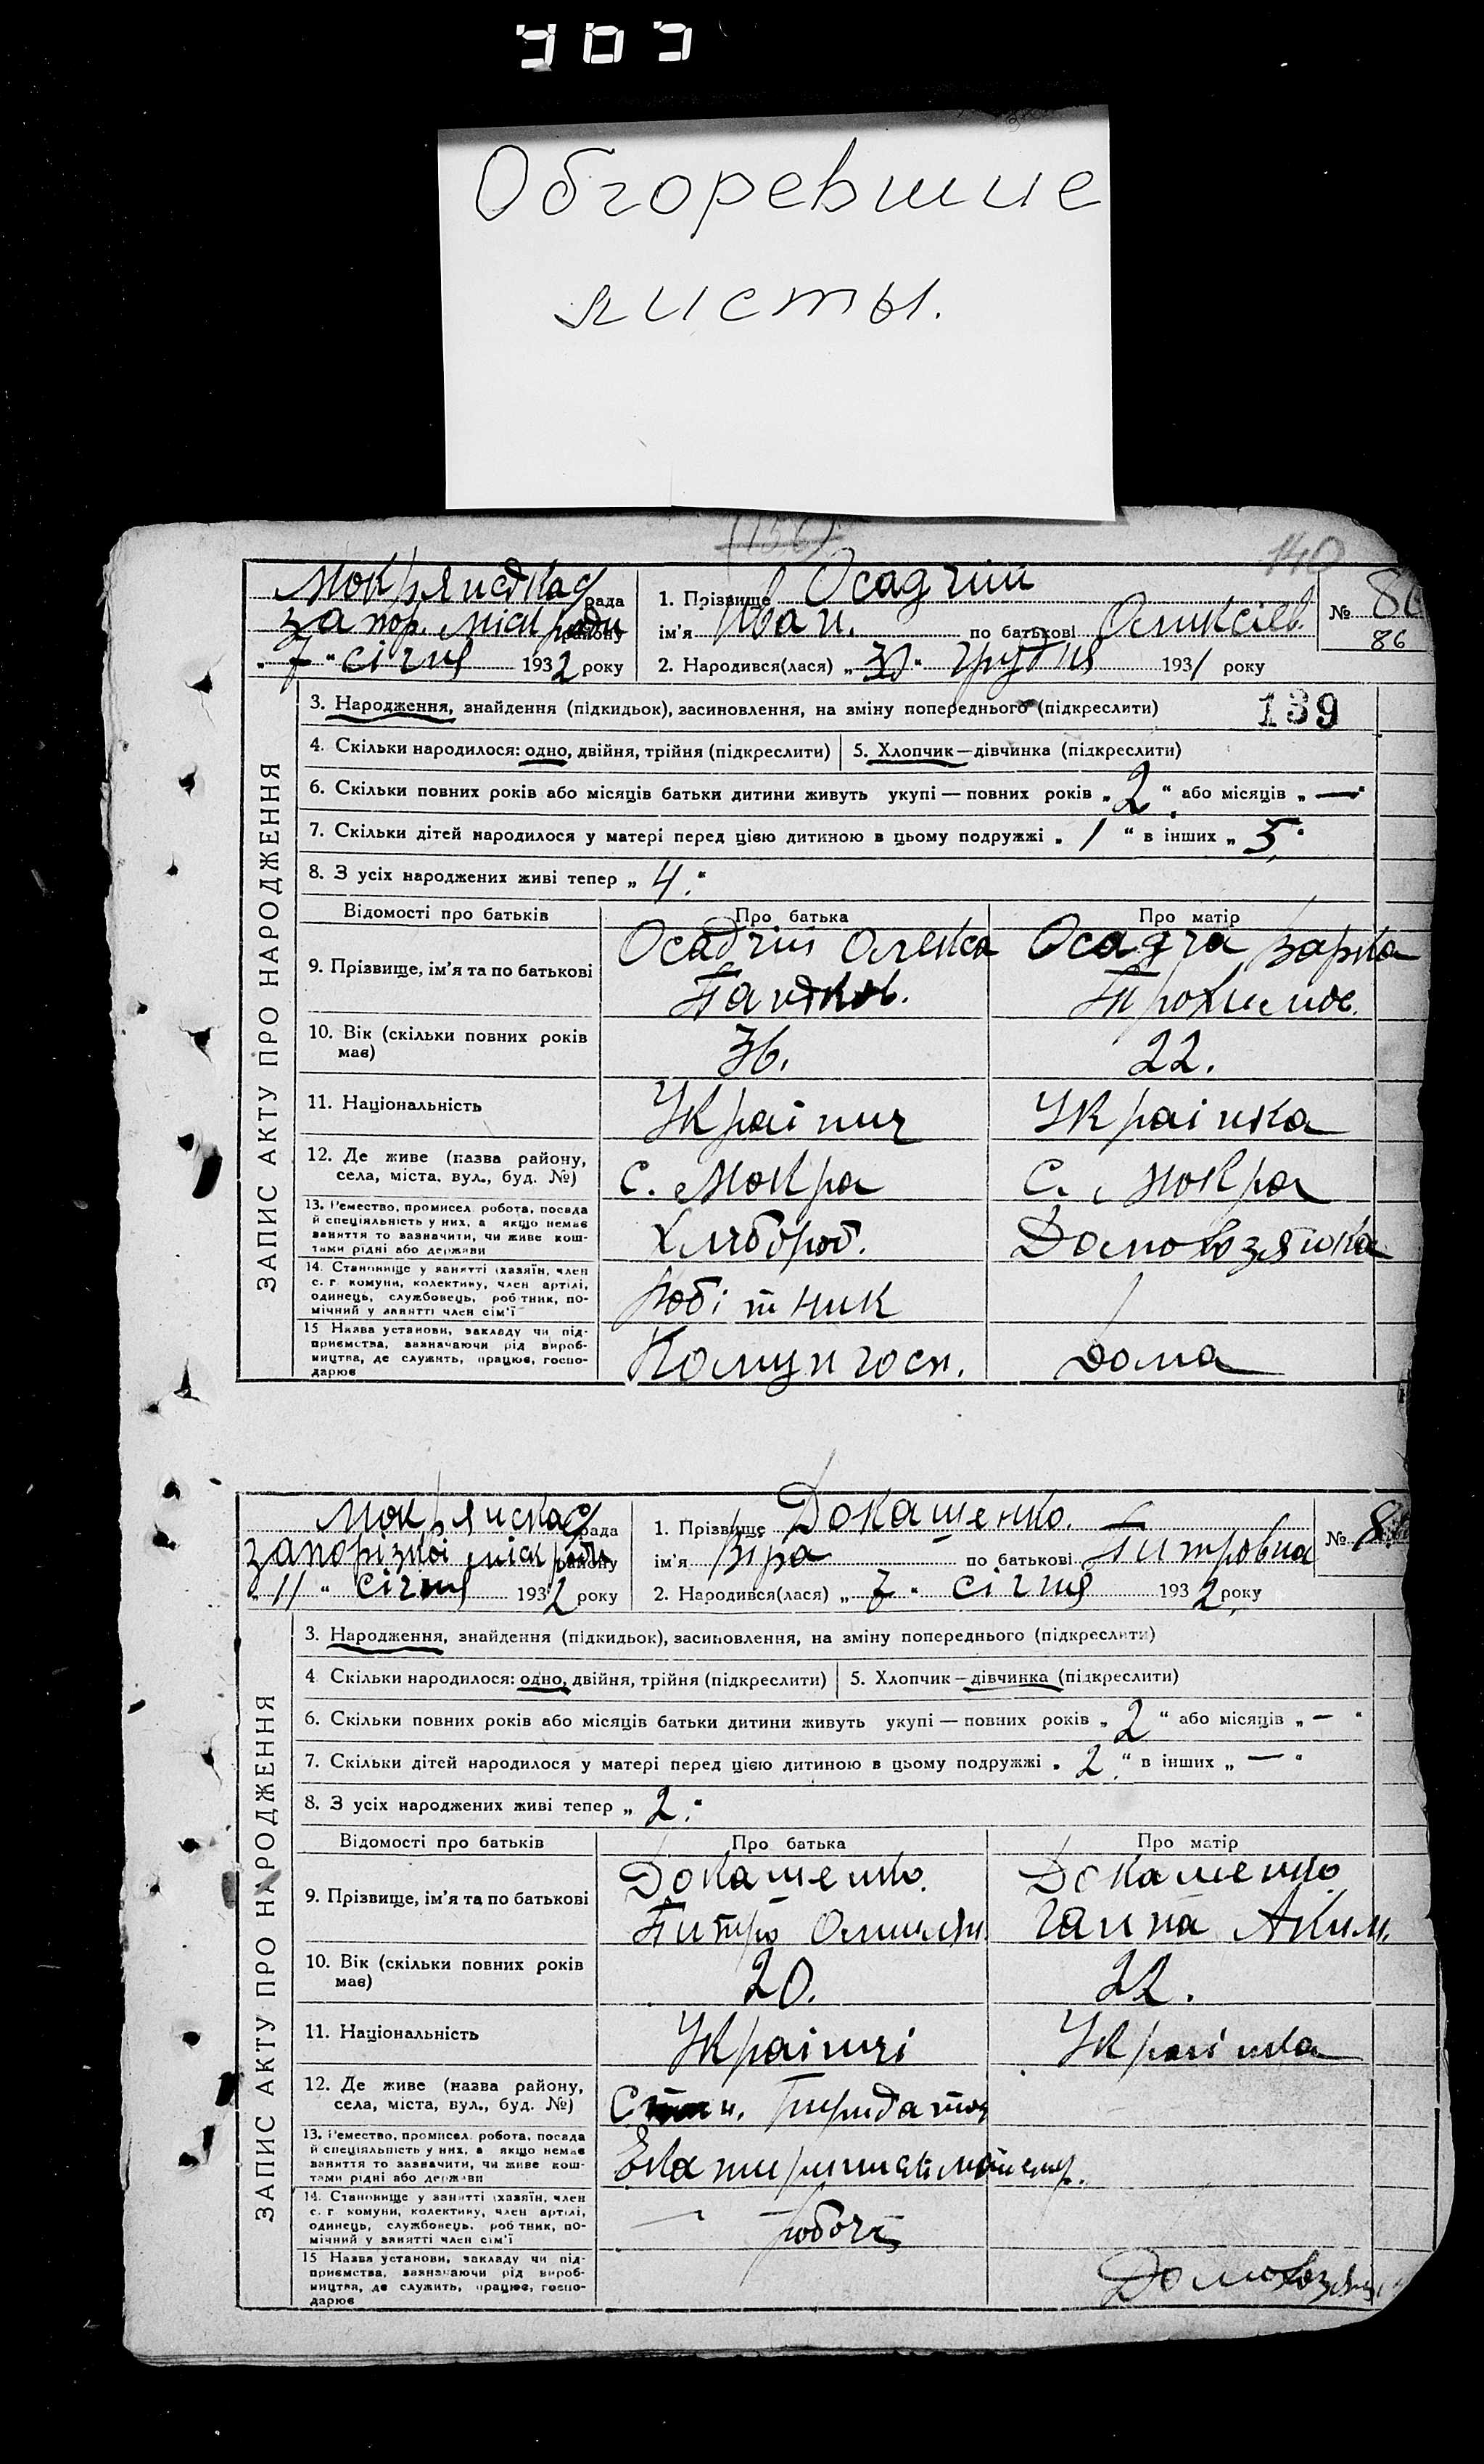 305
Обгоревшие
листы.
140
Мокрянська рада
запор. міськради району
„ 7 “ січня 1932 року
1. Прізвище Осадчий
ім'я Іван. по батькові Олексіев.
№ 86
86
2. Народився(лася) „ 30 “ грудня 1931 року
139
ЗАПИС АКТУ ПРО НАРОДЖЕННЯ
3. Народження, знайдення (підкидьок), засиновлення, на зміну попереднього (підкреслити)
4. Скільки народилося: одно, двійня, трійня (підкреслити) 5. Хлопчик—дівчинка (підкреслити)
6. Скільки повних років або місяців батьки дитини живуть укупі — повних років „ 2 “ або місяців „ — “
7. Скільки дітей народилося у матері перед цією дитиною в цьому подружжі „ 1 “ в інших „ 5 “
8. З усіх народжених живі тепер „ 4. “
Відомості про батьків Про батька Про матір
9. Прізвище, ім'я та по батькові
Осадчий Олекса Осадча Варка
Трохимов.
10. Вік (скільки повних років має) 36. 22.
11. Національність Українч Українка
12. Де живе (назва району, села, міста, вул., буд. №) с. Мокра с. Мокра
13. Ремество, промисел, робота, посада й спеціяльність у них, а якщо немає заняття то зазначити, чи живе коштами рідні або держави Хлібороб. Домохозяйка
14. Становище у занятті (хазяїн, член с. г. комуни, колективу, член артілі, одинець, службовець, робітник, помічний у занятті член сім'ї Робітник
15 Назва установи, закладу чи підприємства, зазначаючи рід виробництва, де служить, працює, господарює Комунгосп. Дома
Мокрянська рада
запорізкої міськради району
„ 11 “ січня 1932 року
1. Прізвище Докашенко.
ім'я Віра по батькові Питровна
№ 8
2. Народився(лася) „ 7 “ січня 1932 року
ЗАПИС АКТУ ПРО НАРОДЖЕННЯ
3. Народження, знайдення (підкидьок), засиновлення, на зміну попереднього (підкреслити)
4 Скільки народилося: одно, двійня, трійня (підкреслити) 5. Хлопчик—дівчинка (підкреслити)
6. Скільки повних років або місяців батьки дитини живуть укупі — повних років „ 2 “ або місяців „ — “
7. Скільки дітей народилося у матері перед цією дитиною в цьому подружжі „ 2. “ в інших „ — “
8. З усіх народжених живі тепер „ 2. “
Відомості про батьків Про батька Про матір
9. Прізвище, ім'я та по батькові
Докашенко. Докашенко
Питро Омилян. Ганна Аким.
10. Вік (скільки повних років має) 20. 22.
11. Національність Українці Українка
12. Де живе (назва району, села, міста, вул., буд. №)
13. Ремество, промисел, робота, посада й спеціяльність у них, а якщо немає заняття то зазначити, чи живе коштами рідні або держави
14. Становище у занятті (хазяїн, член с. г. комуни, колективу, член артілі, одинець, службовець, робітник, помічний у занятті член сім'ї робочий
15 Назва установи, закладу чи підприємства, зазначаючи рід виробництва, де служить, працює, господарює